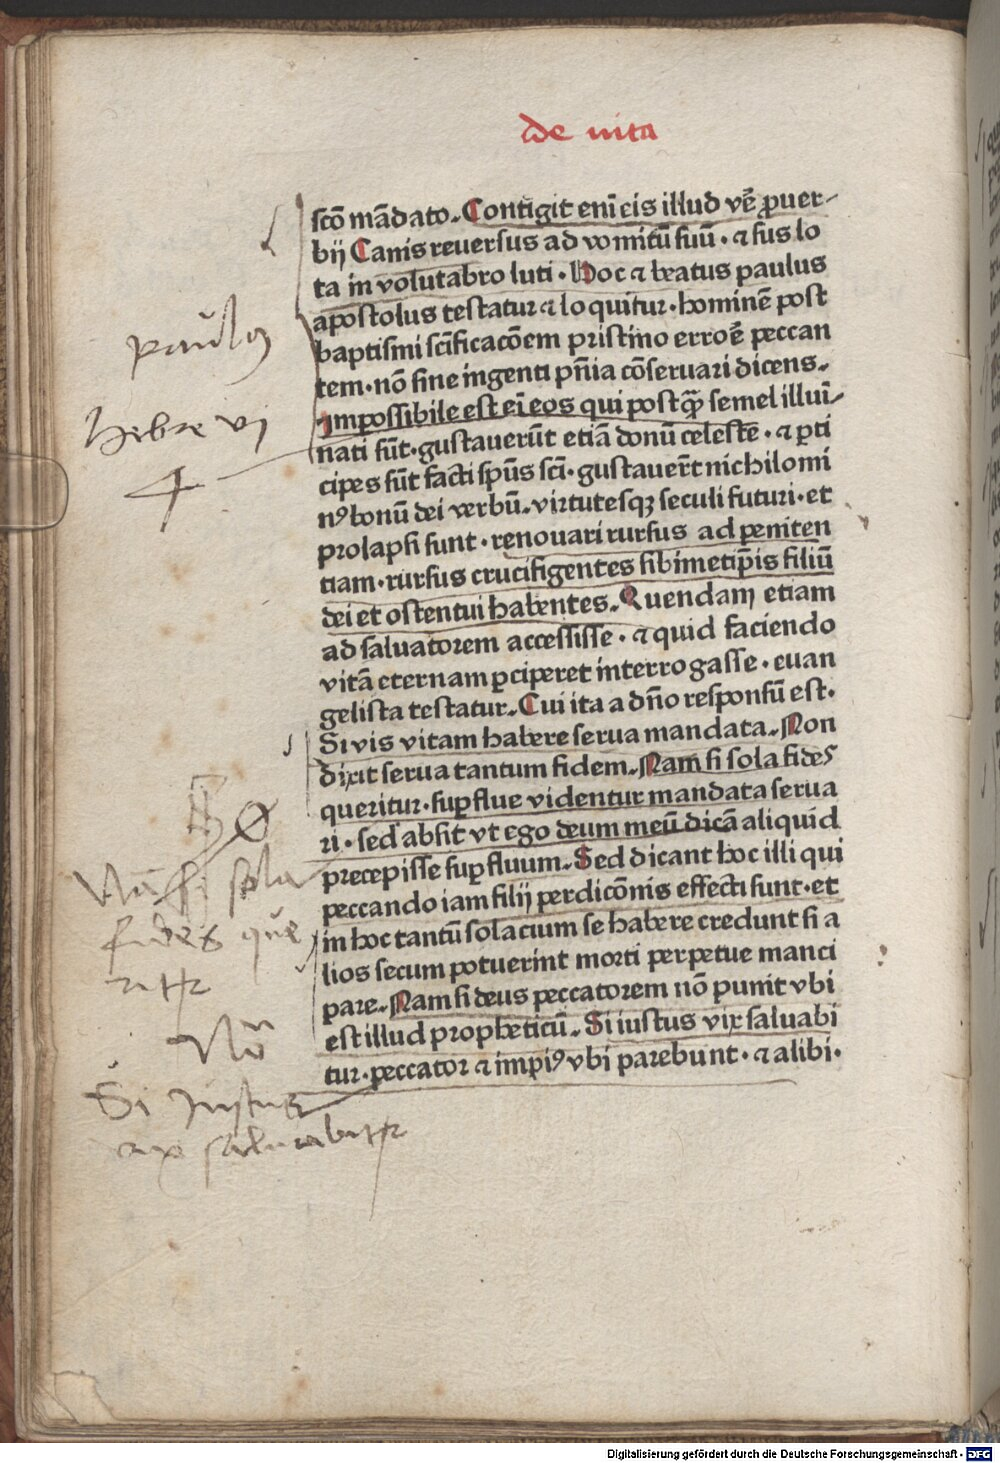 de uita
sctõ mãdato. Contigit eni eis illud vẽ ꝓuer-
bij Canis reuersus ad vomitũ suũ · ⁊ sus lo
ta in volutabro luti · Hoc ⁊ beatus paulus
apostolus testatur ⁊ loquitur · hominẽ post
baptismi scĩficacõem pristino erroẽ peccan
tem · nõ sine ingenti pñia cõseruari dicens.
Impossibile est eĩ eos qui postq̃ semel illuĩ-
nati sũt · gustauerũt etiã donũ celeste · ⁊ ꝑti
cipes sũt facti spũs scĩ · gustauert̃ nichilomi
nꝰ bonũ dei verbũ. virtutesqꝫ seculi futuri · et
prolapsi sunt · renouari rursus ad peniten
tiam · rursus crucifigentes sibimetip̃is filiũ
dei et ostentui habentes. Quendam etiam
ad saluatorem accessisse · ⁊ quid faciendo
vitã eternam ꝑciperet interrogasse · euan
gelista testatur. Cui ita a dño responsũ est ·
Si vis vitam habere serua mandata. Non
dixit serua tantum fidem. Nam si sola fides
queritur · suꝑflue videntur mandata serua
ri · sed absit vt ego deum meũ dicã aliquid
precepisse suꝑfluum. Sed dicant hoc illi qui
peccando iam filij perdicõnis effecti sunt · et
in hoc tantũ solacium se habere credunt si a
lios secum potuerint morti perpetue manci
pare. Nam si deus peccatorem nõ punit vbi
est illud propheticũ. Si iustus vix saluabi
tur · peccator ⁊ impiꝰ vbi parebunt · ⁊ alibi ·
paulꝰ
Hebre vi
Nã si sola
fides que
ritr
Nõ
Si Justus
vix saluabitr
Digitalisierung gefördert durch die Deutsche Forschungsgemeinschaft · DFG